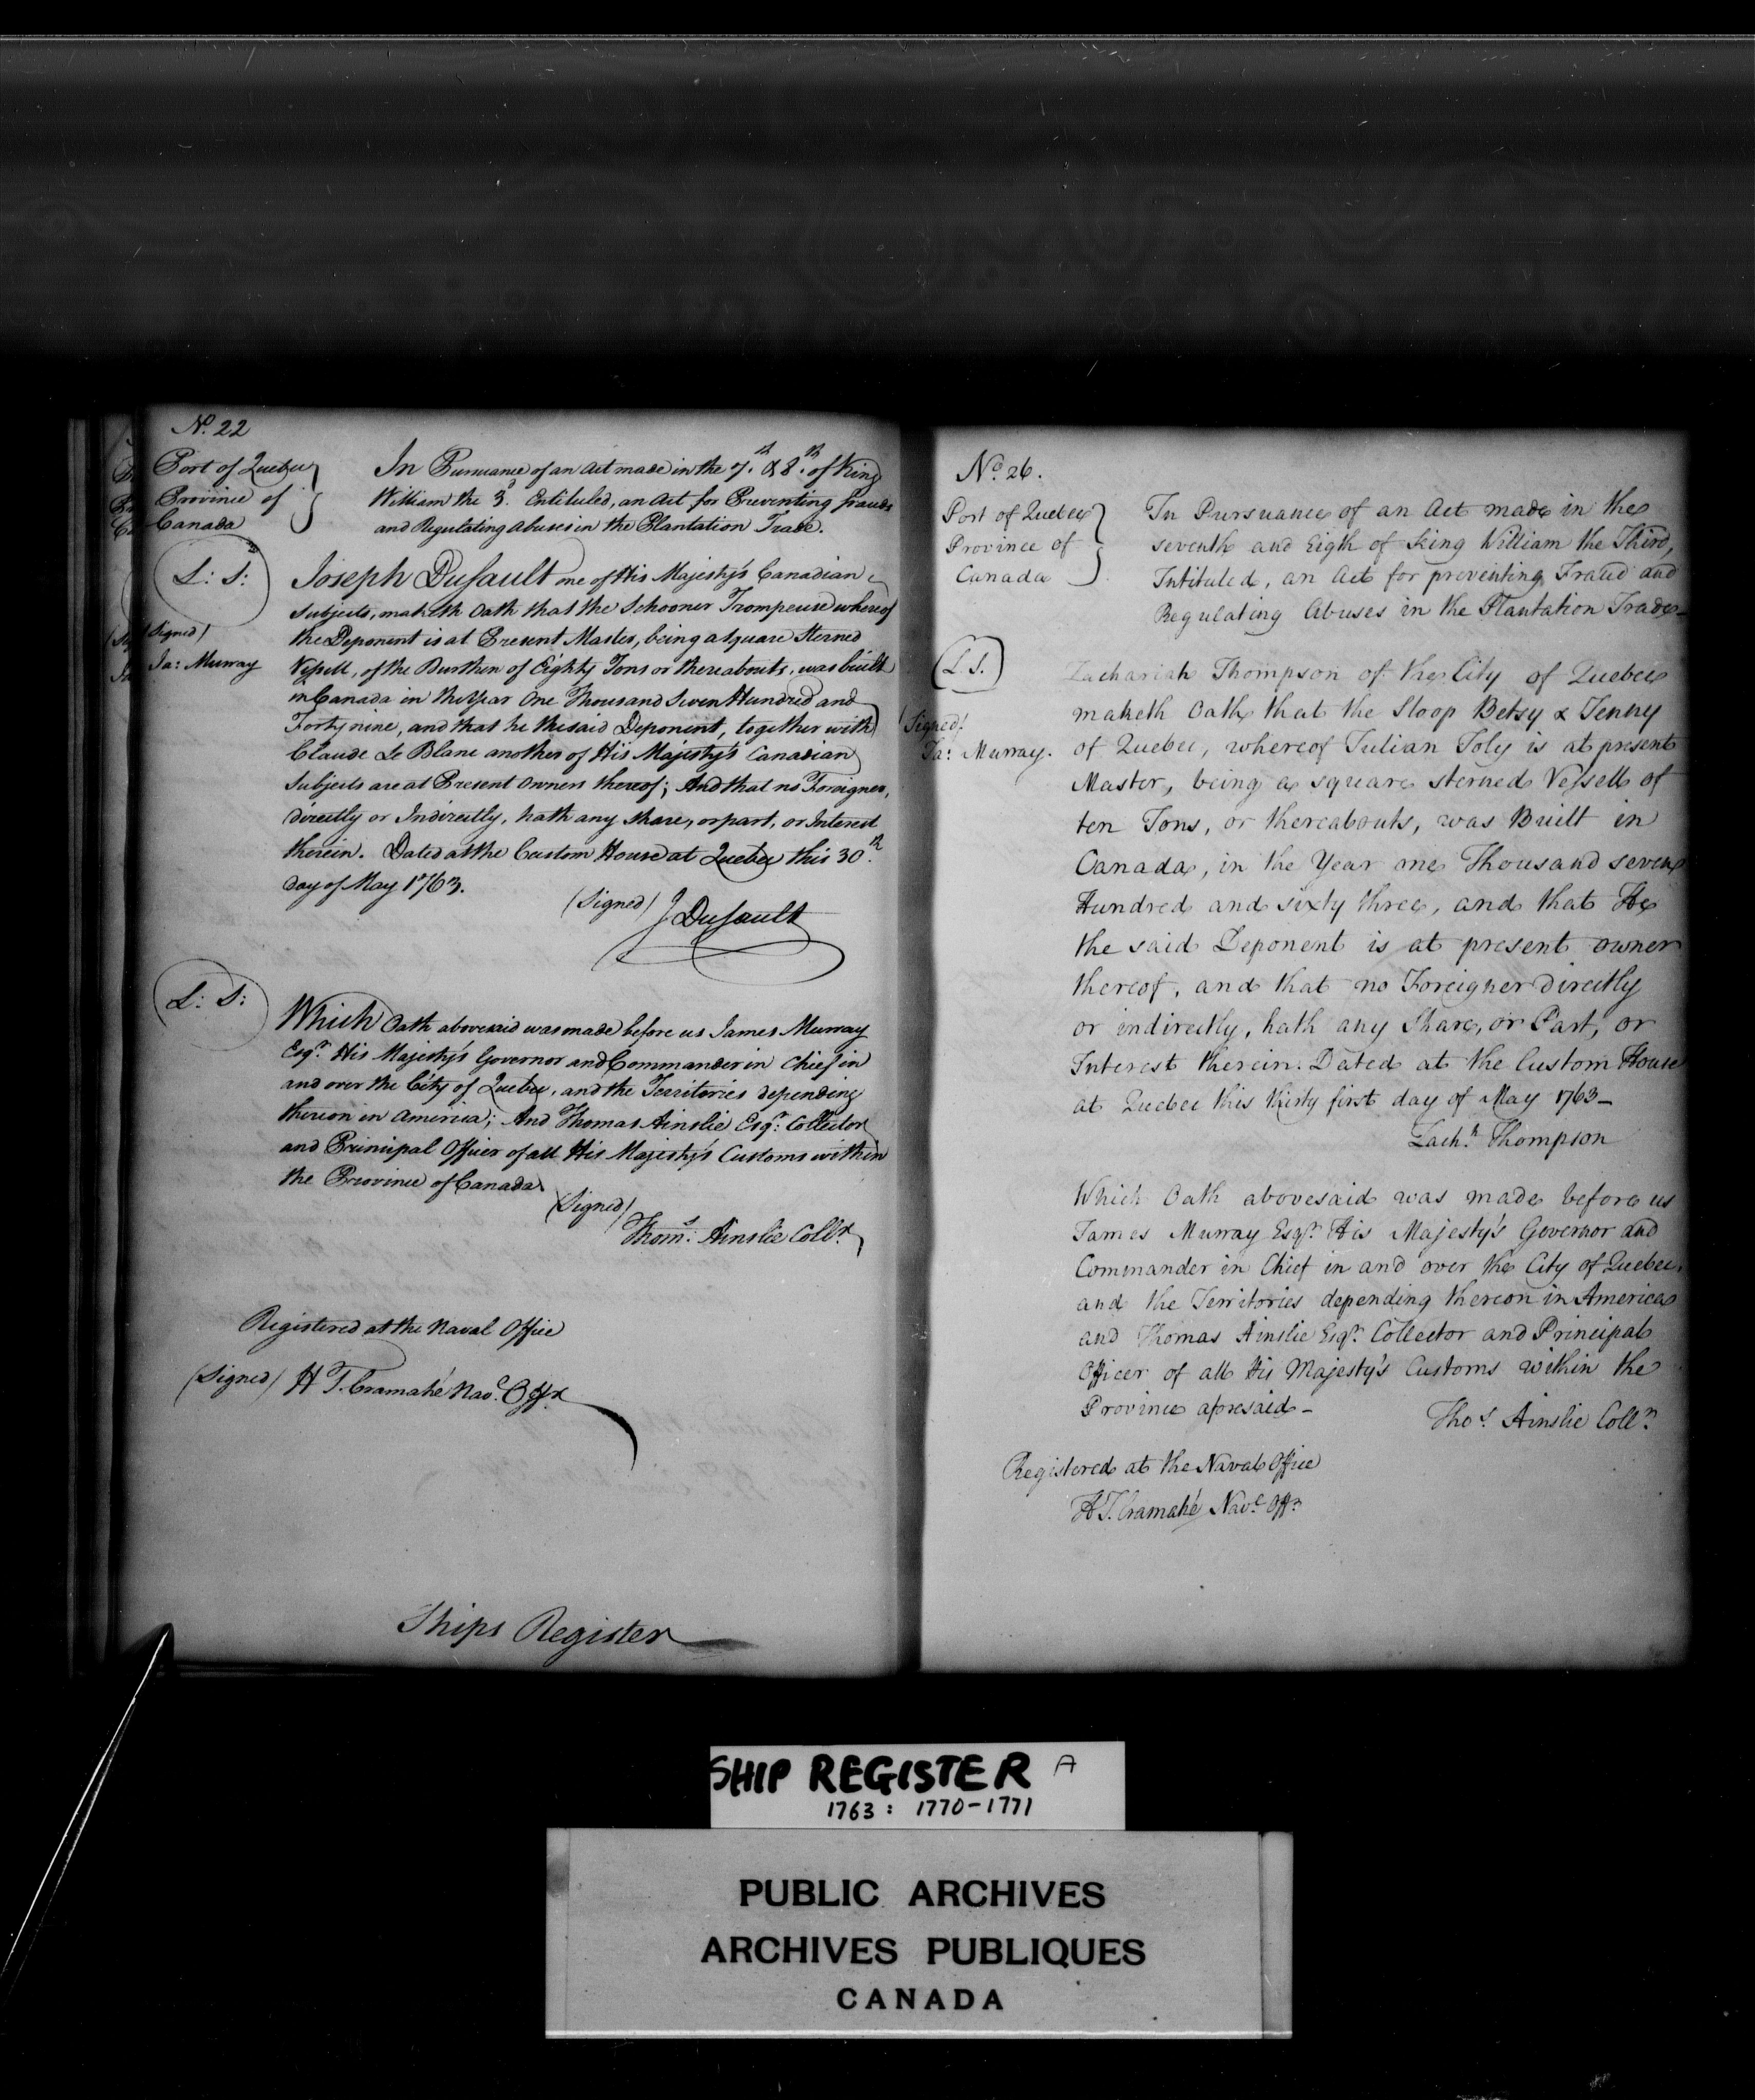 No. 22
Port of Quebec
Province of
Canada
In Pursuance of an Act made in the 7.th & 8.th of King
William the 3.d Entituled, an Act for Preventing frauds
and Regulating Abuses in the Plantation Trade.
L: S:
(Signed)
Ja: Murray
Joseph Dufault one of His Majesty's Canadian
Subjects, maketh Oath that the Schooner Trompeuse whereof
the Deponent is at Present Master, being a square Sterned
Vessell, of the Burthen of Eighty Tons or thereabouts, was built
in Canada in the Year One Thousand Seven Hundred and
Forty nine, and that he the said Deponent, together with
Claude Le Blanc another of His Majesty's Canadian
Subjects are at Present Owners thereof; And that no Foreigner,
directly or Indirectly, hath any share, or part, or Interest
therein. Dated at the Custom House at Quebec this 30.th
day of May 1763.
(Signed) J Dufault
L: S:
Which Oath abovesaid was made before us James Murray
Esq.r His Majesty's Governor and Commander in Chief in
and over the City of Quebec, and the Territories depending
thereon in America; And Thomas Ainslie Esq.r Collector
and Principal Officer of all His Majesty's Customs within
the Province of Canada
(Signed)
Thom.s Ainslie Coll.r
Registered at the Naval Office
(Signed) H T. Cramahé Nav.l Off.r
Ships Register
No. 26.
Port of Quebec
Province of
Canada
In Pursuance of an Act made in the
seventh and Eigth of King William the Third,
Intituled, an Act for preventing Fraud and
Regulating Abuses in the Plantation Trade-
L.S.
(Signed)
Ja: Murray.
Zachariah Thompson of the City of Quebec
maketh Oath that the Sloop Betsy & Jenny
of Quebec, whereof Julian Joly is at present
Master, being a square sterned Vessell of
ten Tons, or thereabouts, was Built in
Canada, in the Year one Thousand seven
Hundred and sixty three, and that He
the said Deponent is at present owner
thereof, and that no Foreigner directly
or indirectly, hath any Share, or Part, or
Interest therein. Dated at the Custom House
at Quebec this thirty first day of May 1763-
Zach.h Thompson
Which Oath abovesaid was made before us
James Murray Esq.r His Majesty's Governor and
Commander in Chief in and over the City of Quebec,
and the Territories depending thereon in America
and Thomas Ainslie Esq.r Collector and Principal
Officer of all His Majesty's Customs within the
Province aforesaid-
Tho.s Ainslie Coll.r
Registered at the Naval Office
H T. Cramahé Nav.l Off.r
SHIP REGISTER A
1763: 1770-1771
PUBLIC ARCHIVES
ARCHIVES PUBLIQUES
CANADA